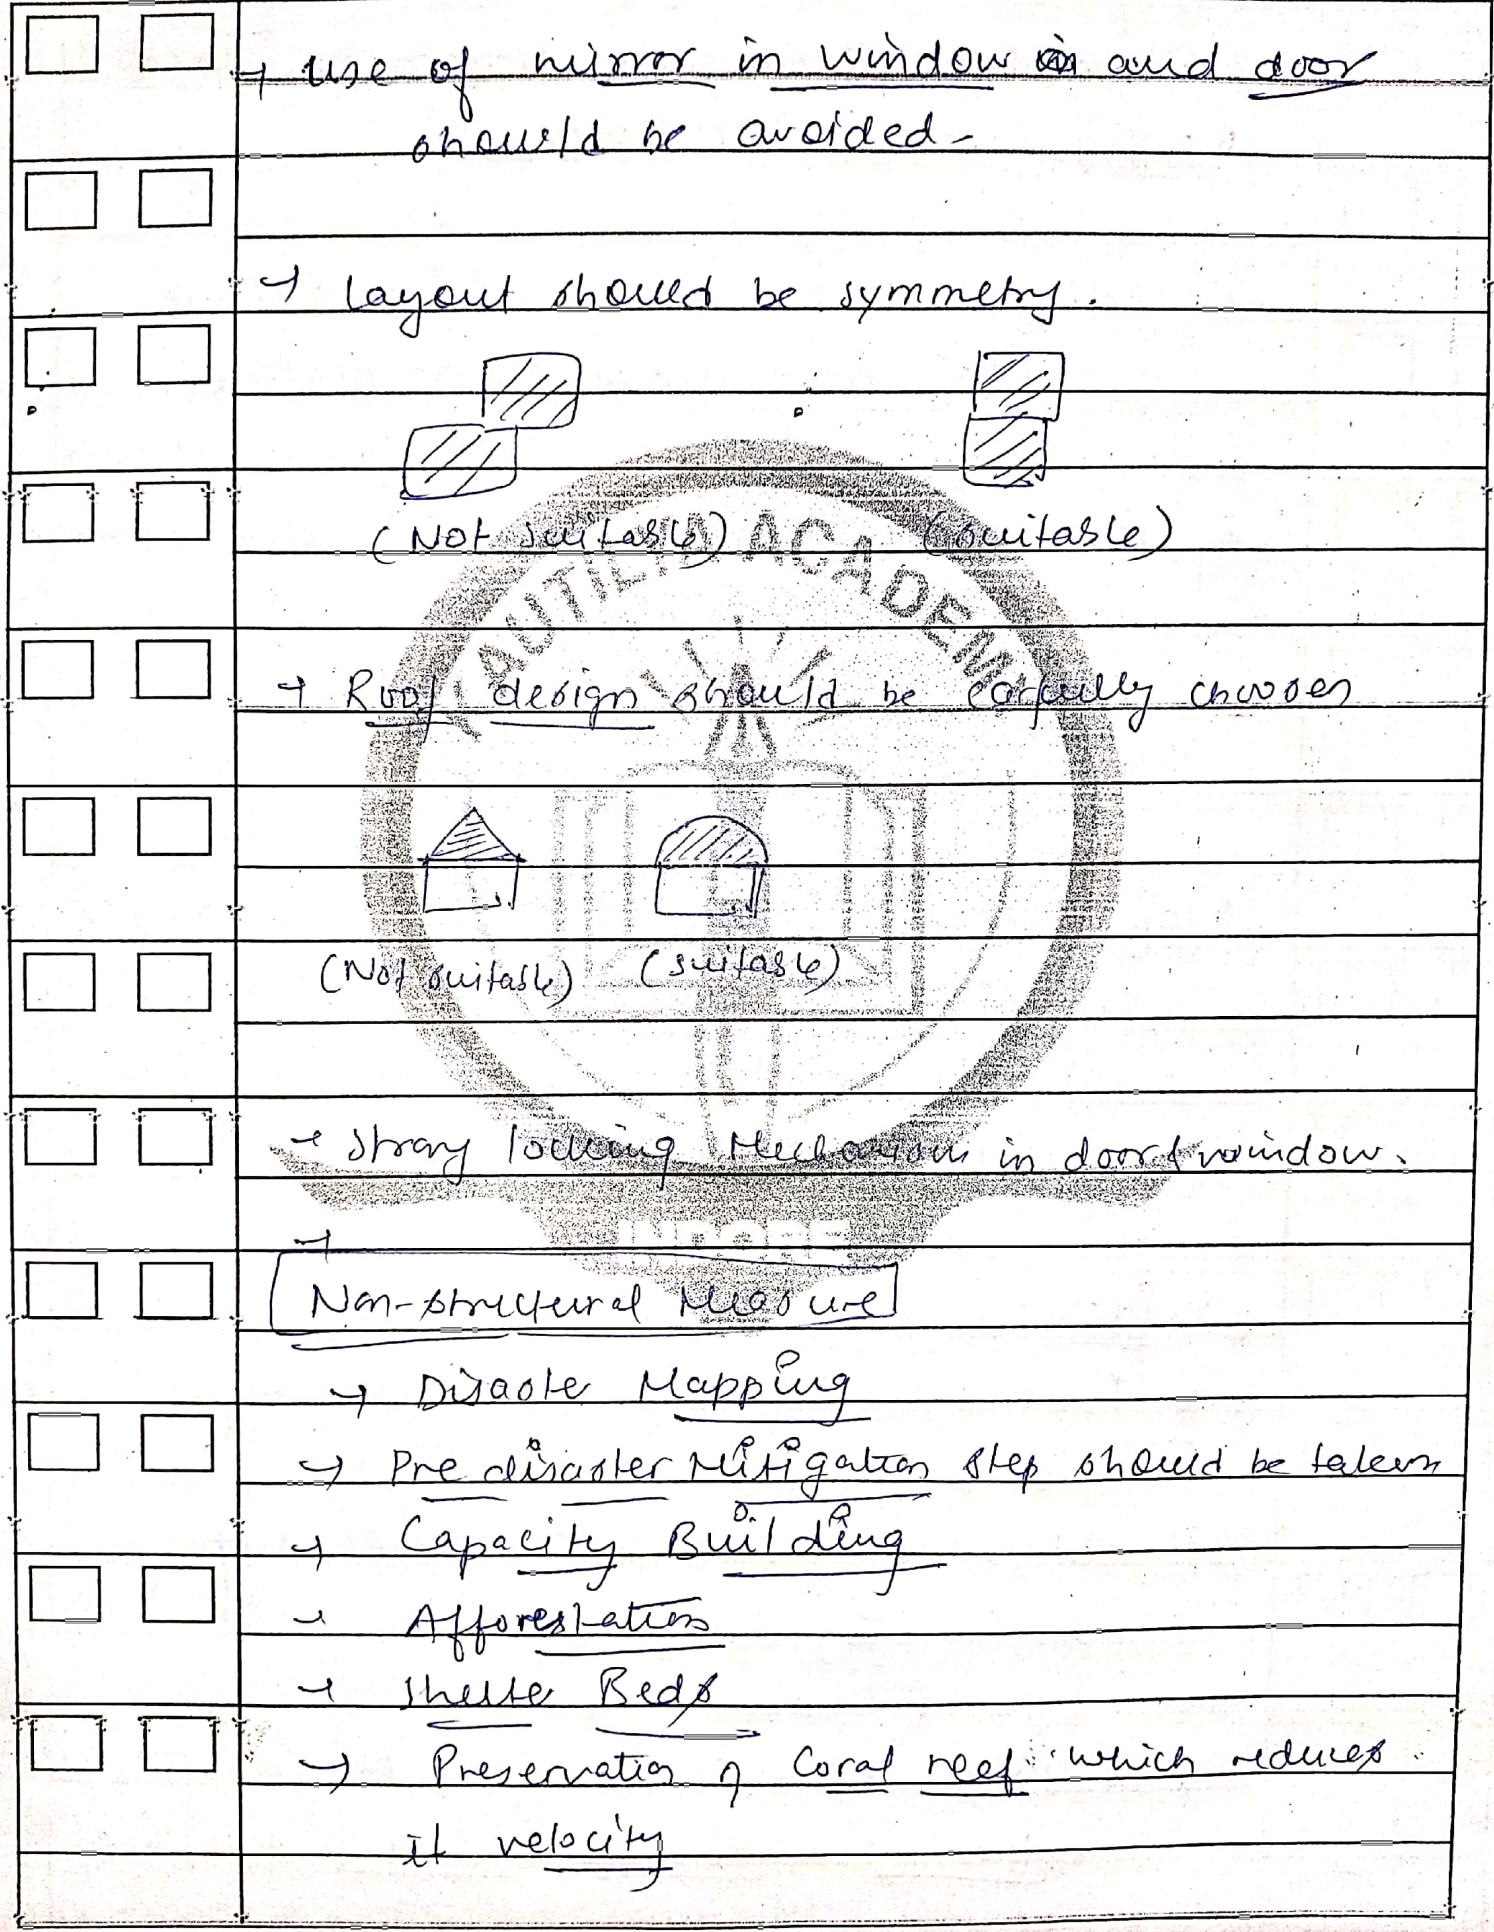 → use of mirror in window and door
should be avoided -
→ Layout should be symmetry.
(Not suitable) (suitable)
KAUTILYA ACADEMY
→ Roof design should be carfully choosen
(Not suitable) (suitable)
→ Strong locking Mechanism in door & window.
INDORE
→
Non-structural Measure
→ Disaster Mapping
→ Pre disaster Mitigation step should be taken
→ Capacity Building
→ Afforestation
→ Shelter Beds
→ Preservation of Coral reef which reduces
it velocity